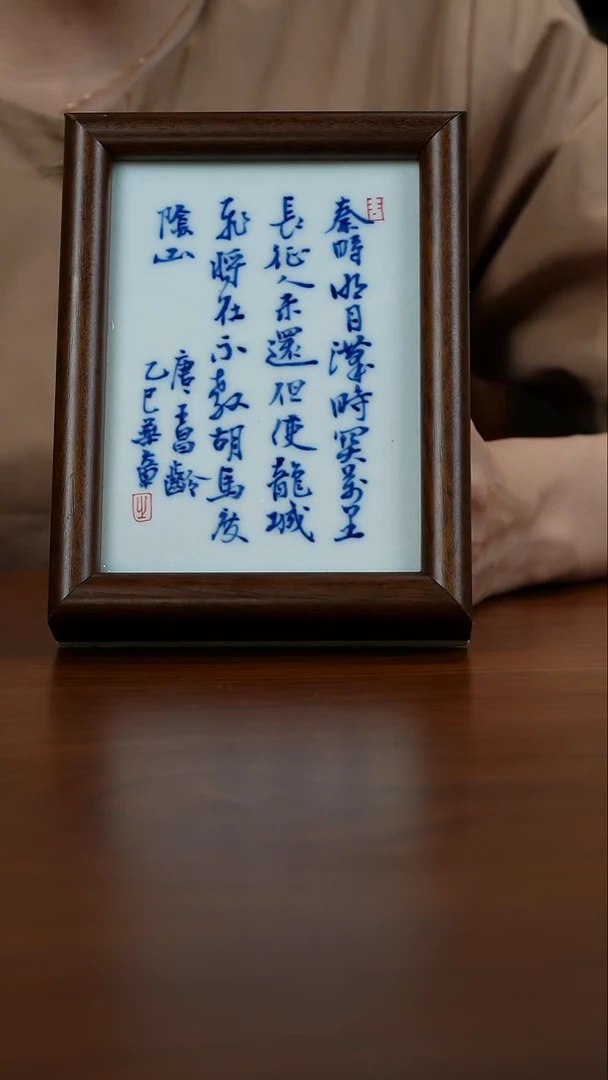 秦時明月漢時關萬里
長征人未還但使龍城
飛將在不教胡馬度
陰山
唐王昌齡
乙巳